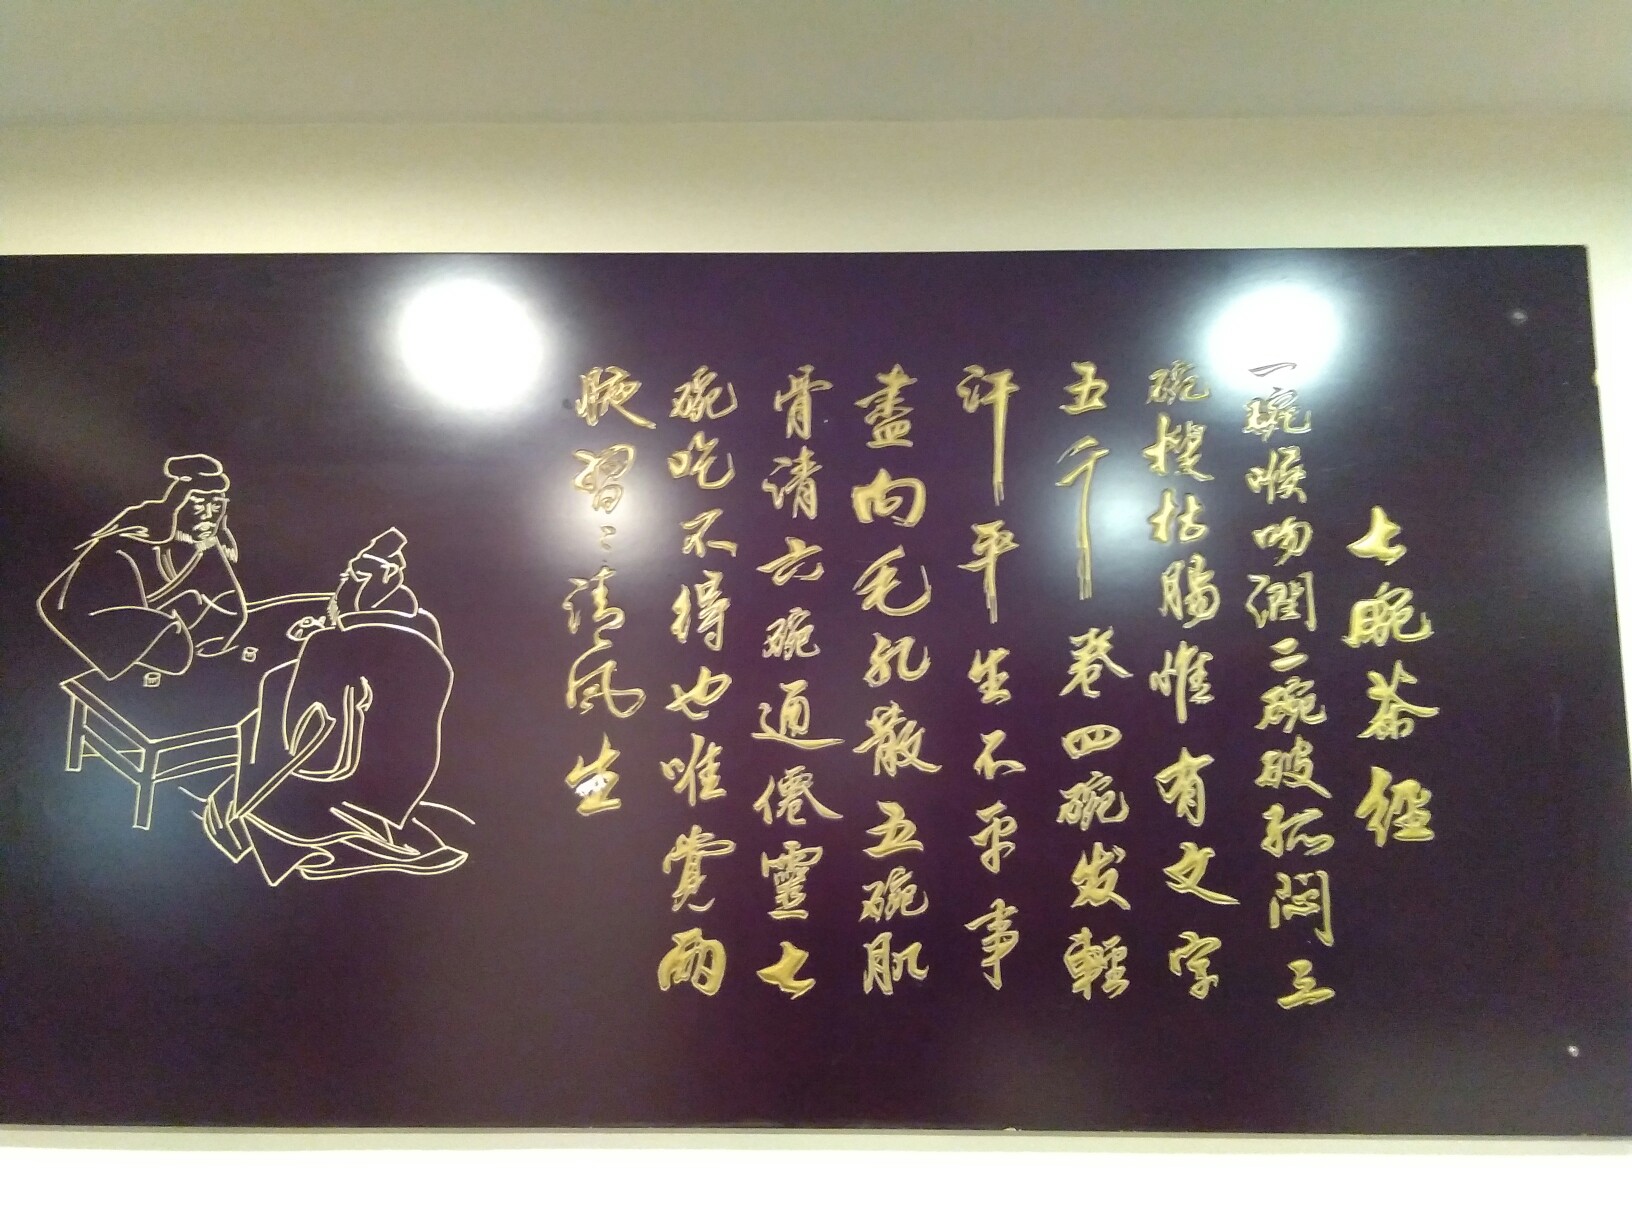 七碗茶经
一碗喉吻潤二碗破孤悶三
碗搜枯腸惟有文字
五千卷四碗发輕
汗平生不平事
盡向毛孔散五碗肌
骨清六碗通僊靈七
碗吃不得也唯覺两
腋習々清风生